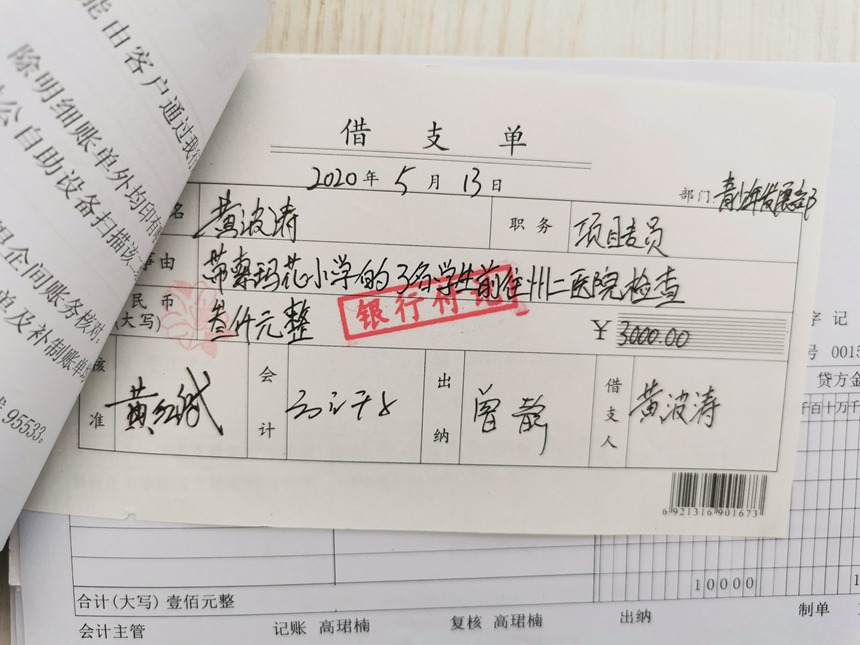 能由客户通过我
除明细账单外均印有
公自助设备扫描该
银企间账务核对
单及补制账单
95533。
借支单
2020年5月13日
部门 青少年发展部
名 黄波涛 职务 项目专员
事由 带桑玛花小学的3名学生前往州二医院检查
民币
(大写) 叁仟元整 ¥ 3000.00
银行付讫
核准 会计 出纳 曾静 借支人 黄波涛
6 921316 901673
字 记
号 0015
贷方金
千百十万千
10000
合计(大写) 壹佰元整
会计主管 记账 高珺楠 复核 高珺楠 出纳 制单